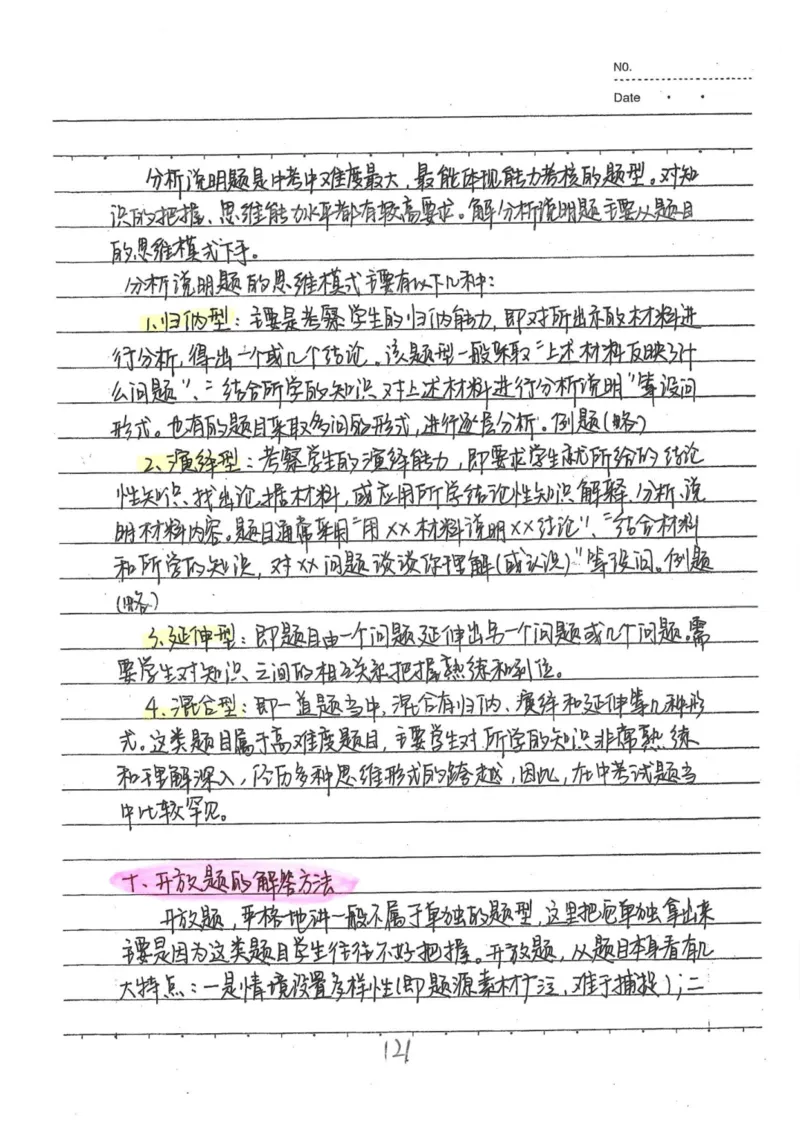 NO.
Date
分析说明题是中考中难度最大,最能体现能力考核的题型。对知
识的把握、思维能力水平都有较高要求。解分析说明题主要从题目
的思维模式下手。
分析说明题的思维模式主要有以下几种:
1.归纳型:主要是考察学生的归纳能力,即对所出示的材料进
行分析,得出一个或几个结论。该题型一般采取“上述材料反映了什
么问题”、“结合所学的知识对上述材料进行分析说明”等设问
形式。也有的题目采取多问的形式,进行逐层分析。例题(略)
2、演绎型:考察学生的演绎能力,即要求学生就所给的结论
性知识,找出论据材料,或应用所学结论性知识解释、分析、说
明材料内容。题目通常采用“用××材料说明××结论”、“结合材料
和所学的知识,对××问题谈谈你理解(或认识)”等设问。例题
(略)
3.延伸型:即题目由一个问题延伸出另一个问题或几个问题。需
要学生对知识之间的相互关系把握熟练和到位。
4.混合型:即一道题当中,混合有归纳、演绎和延伸等几种形
式。这类题目属于高难度题目,主要学生对所学的知识非常熟练
和理解深入,经历多种思维形式的跨越,因此,在中考试题当
中比较罕见。
十、开放题的解答方法
开放题,严格地讲一般不属于单独的题型,这里把它单独拿出来
主要是因为这类题目学生往往不好把握。开放题,从题目本身看有几
大特点:一是情境设置多样性(即题源素材广泛,难于捕捉);二
121